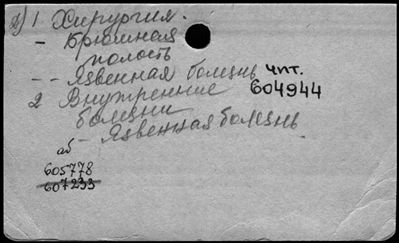 а) 1 Хирургия.
- Брюшная
полость
-- Язвенная болезнь
чпт.
604944
2 Внутренние
болезни
- Язвенная болезнь
аб
605778
607233